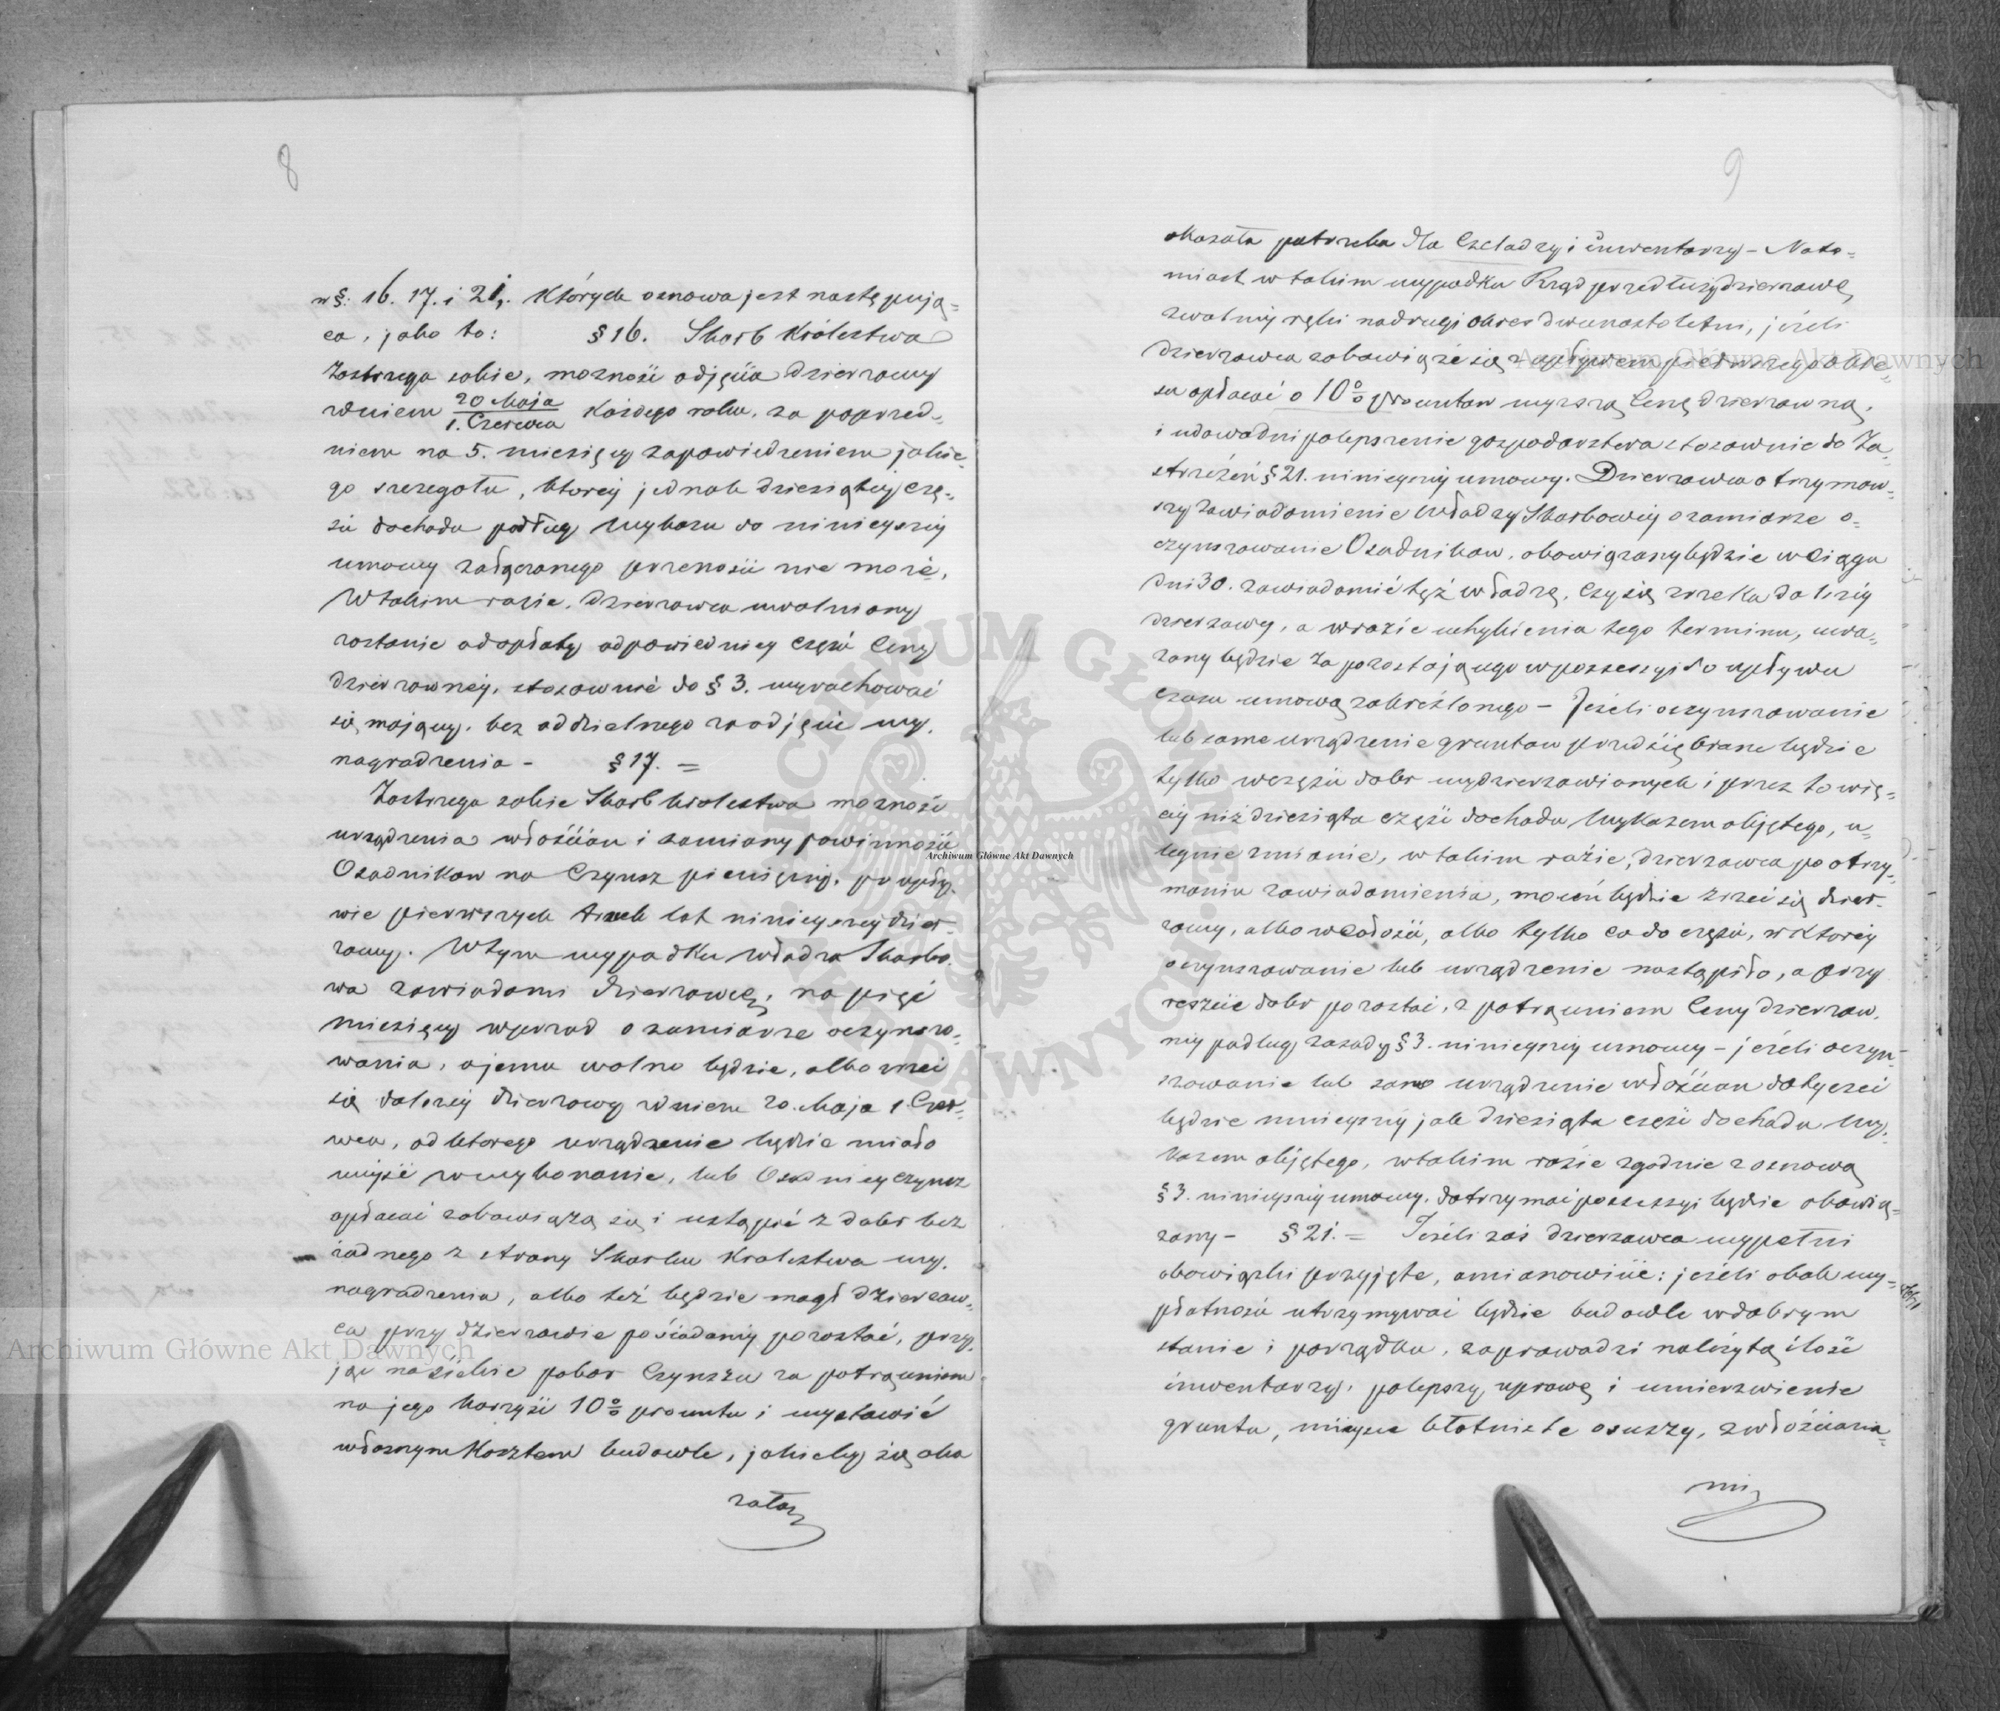 8
w §. 16. 17. i 21. których osnowa jest następują-
ca, jako to: § 16. Skarb Królestwa
Zastrzega sobie, możność odjęcia dzierzawy
w dniem 20 Maja / 1. Czerwca każdego roku, za poprzed-
niem na 5. miesięcy zapowiedzeniem jakie-
go szczegołu, ktorey jednak dziesiątey czę-
ści dochodu podług wykazu do ninieyszey
umowy załączonego przenosić nie może,
W takim razie, dzierzawca uwolniony
zostanie od opłaty odpowiedniey części Ceny
dzierzawney, stosownie do § 3. wyrachować
się mającey, bez oddzielnego za odjęcie wy-
nagrodzenia - § 17. =
Zastrzega sobie Skarb Krolestwa możność
urządzenia włościan i zamiany powinności
Osadnikow na Czynsz pieniężny, po upły-
wie pierwszych trzech lat ninieyszey dzier-
zawy. W tym wypadku władza Skarbo-
wa zawiadomi dzierzawcę, na pięć
miesięcy wprzod o zamiarze oczynszo-
wania, a jemu wolno będzie, albo zrzec
się dalszey dzierzawy w dniem 20. Maja 1. Czer-
wca, od ktorego urządzenie będzie miało
wejść w wykonanie, lub Osadnicy czynsz
opłacać zobowiążą się i ustąpić z dobr bez
żadnego z strony Skarbu Krolestwa wy-
nagrodzenia, albo też będzie mogł dzierzaw-
ca przy dzierzawie posiadaney pozostać, przy-
jąć na siebie pobor Czynszu za potrąceniem
na jego korzyść 10% procentu i wystawić
własnym Kosztem budowle, jakieby się oka
załaz
Archiwum Główne Akt Dawnych
9
okazała potrzeba dla Czeladzy i inwentarzy - Nato-
miast w takim wypadku Rząd przedłuży dzierzawę
z wolney ręki na drugi okres dwunastoletni, jeżeli
dzierzawca zobowiąże się z upływem pierwszego okre-
su opłacać o 10% procentow wyższą Cenę dzierzawną,
i udowodni polepszenie gospodarstwa stosownie do Za-
strzeżeń § 21. ninieyszey umowy. Dzierzawca otrzymaw-
szy zawiadomienie władzy Skarbowey o zamiarze o-
czynszowanie Osadnikow, obowiązany będzie w Ciągu
dni 30. zawiadomić tęż władzę, Czy się zrzeka dalszey
dzierzawy, a w razie uchybienia tego terminu, uwa-
żany będzie za pozostającego w possessyi do upływu
Czasu umową zakreślonego - Jeżeli oczynszowanie
lub same urządzenie gruntow przedsiębrane będzie
tylko w części dobr wydzierzawionych i przez to wię-
cey niż dziesiąta część dochodu wykazem objętego, u-
legnie zmianie, w takim razie, dzierzawca po otrzy-
maniu zawiadomienia, mocen będzie zrzec się dzier-
zawy, albo w całości, albo tylko co do części, w ktorey
oczynszowanie lub urządzenie nastąpiło, a przy
reszcie dobr pozostać, z potrąceniem Ceny dzierzaw-
ney podług zasady § 3. ninieyszey umowy - jeżeli oczyn-
szowanie lub samo urządzenie włościan dotyczeć
będzie mnieyszey jak dziesiąta część dochodu wy-
kazem objętego, w takim razie zgodnie z osnową
§ 3. ninieyszey umowy, dotrzymać possessyi będzie obowią-
zany - § 21. = Jeżeli zaś dzierzawca wypełni
obowiązki przyjęte, a mianowicie: jeżeli obok wy-
płatności utrzymywać będzie budowle w dobrym
stanie i porządku, zaprowadzi należytą ilość
inwentarzy, polepszy uprawę i umierzwienie
gruntu, mieysca błotniste osuszy, z włościana-
mi,
Archiwum Główne Akt Dawnych
Archiwum Główne Akt Dawnych
ARCHIWUM GŁÓWNE AKT DAWNYCH